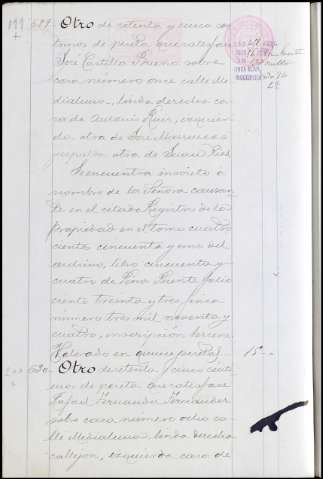 Otro de setenta y cinco cen
timos de peseta que satisface
José Castillo Bueno sobre
casa número once calle de
Medialuna, linda derecha ca
sa de Antonio Ruiz, izquier
da otra de José
y espalda otra de
Se encuentra inscrito a
nombre de la Señora causan
te en el citado Registro de la
propiedad en el tomo cuatro
cientos cincuenta y uno del
archivo, libro cincuenta y
cuatro de Pinos Puente folio
ciento treinta y tres, finca
número tres mil noventa y
cuatro, inscripción tercera.
Valorado en quince pesetas 15 "
Otro de setenta y cinco cent
imos de peseta que satisface
Rafael Fernandez Fernandez
sobre casa número ocho ca
lle Medialuna, linda derecha
callejon, izquierda casa de